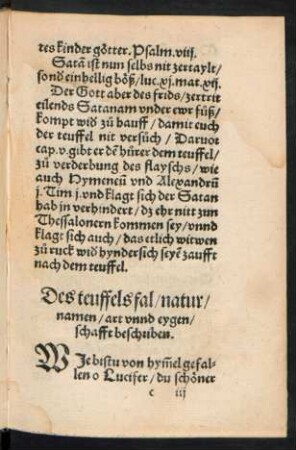 tes kinder götter. Psalm. viij.
Satā ist nun selbs nit zertaylt/
sond einhellig böß/luc. xj. mat. xij.
Der Gott aber des frids/zertrit
eilends Satanam vnder ewr füß/
kompt wid zů hauff/damit euch
der teuffel nit versůch/Daruor
cap. v. gibt er dē hürer dem teuffel/
zů verderbung des flayschs/wie
auch Hymeneū vnd Alexandrū
j. Tim j. vnd klagt sich der Satan
hab in verhindert/dz ehr nitt zum
Thessalonern kommen sey/vnnd
klagt sich auch/das etlich witwen
zů ruck wid hyndersich seyē zaufft
nach dem teuffel.
Des teuffels fal/natur/
namen/art vnnd eygen/
schafft beschriben.
WJe bistu von hym̄el gefal/
len o Lucifer/du schöner
c iij